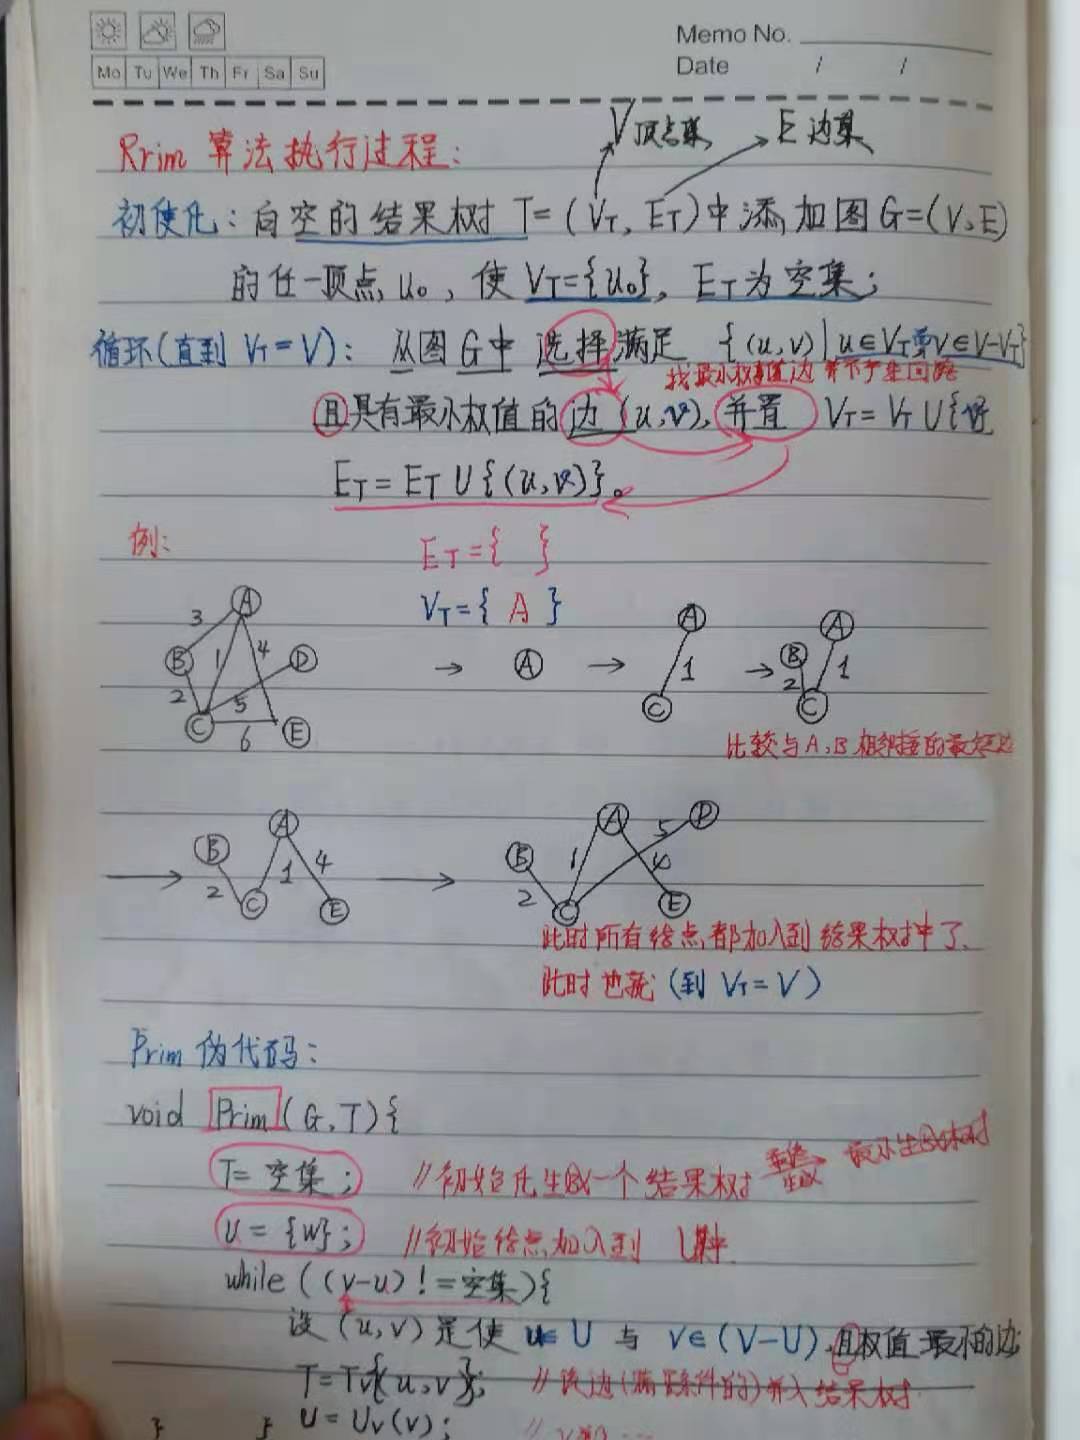 Memo No.
Mo Tu We Th Fr Sa Su
Date / /
V顶点集 E边集
Rrim 算法执行过程:
初使化: 向空的结果树 T=(V_T, E_T)中添加图G=(V,E)
的任一顶点u₀, 使 V_T={u₀}, E_T为空集;
循环(直到 V_T=V): 从图G中选择满足 {(u,v)|u∈V_T v∈V-V_T}
找最小权值边 并不产生回路
且具有最小权值的边(u,v), 并置 V_T=V_T U{
E_T=E_T U{(u,v)}。
例:
E_T={ }
V_T={ A }
A 3 B 1 4 D 2 5 C 6 E
→ A → A 1 C → B A 2 1 C
比较与A,B相邻接的最短边
→ B A 2 1 4 C E → B A D 1 5 2 4 C E
此时所有结点都加入到结果树中了.
此时也就(到 V_T=V)
Prim 伪代码:
void Prim(G,T){
T=空集; //初始化生成一个结果树 生成 最小生成树
U={w}; //初始结点加入到 U中
while((V-U)!=空集){
设(u,v)是使 u∈U 与 v∈(V-U),且权值最小的边;
T=T∨{u,v}; //该边(满足条件的)并入结果树
U=U∨(v); //
} }